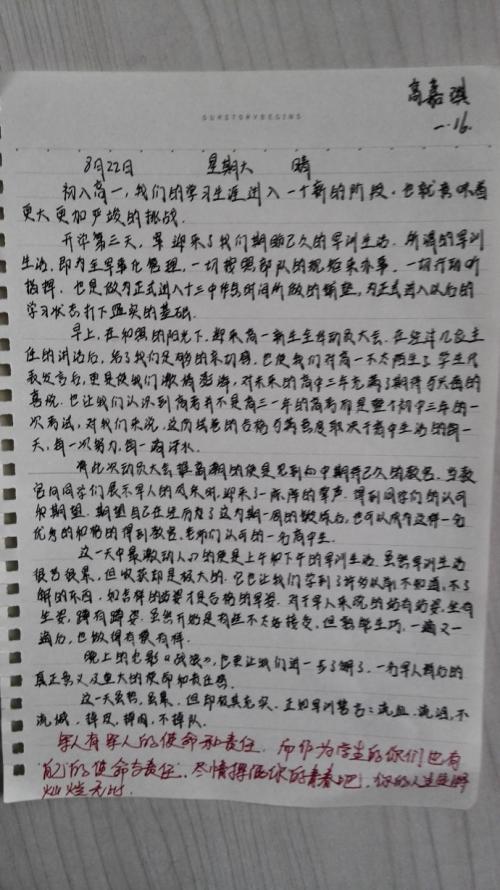 高嘉琪
一.16.
OURSTORYBEGINS
8月22日 星期六 晴
初入高一,我们的学习生涯进入一个新的阶段,也就意味着
更大更加严峻的挑战.
开学第三天,军迎来了我们期盼已久的军训生活.所谓的军训
生活,即为全军事化管理,一切按照部队的规矩来办事,一切行动听
指挥.也是做为正式进入十三中
学习状态打下坚实的基础.
早上,在初强的阳光下,迎来高一新生全体动员大会.在经过几位主
任的讲话后,给了我们足够的亲切感,也使我们对高一不太陌生了.学生代
表发言后,更是使我们激情澎湃,对未来的高中三年充满了期待与美好的
喜悦.也让我们认识到高考并不是高三一年的高考而是整个初中三年的一
次考试,对我们来说,这成绩的合格与满意度取决于高中生活的每一
天,每一次努力,每一滴汗水.
有此次动员大会最高潮的便是见到心中期待已久的教官.当教
官向同学们展示军人的风采时,迎来了一阵阵的掌声.得到同学们的认可
和期望.期望自己在经历为了这为期一周的锻炼后,也可以成为这样一名
优秀的和的得到教官,老师们认可的一名高中生.
这一天中最激动人心的便是上午和下午的军训生活.虽然军训生活
很苦很累,但收获却是极大的.它也让我们学到了许多以前不知道,不了
解的东西,如怎样的站姿才是合格的军姿.对于军人来说的站有站姿,坐有
坐姿,蹲有蹲姿.虽然开始是有些不太好接受,但熟能生巧,一遍又一
遍后,也做得有模有样.
晚上的电影《战狼》,也更让我们进一步了解了,一名军人背后的
真正意义及重大的使命和责任感.
这一天虽苦,虽累,但却极其充实.正如军训誓言:流血,流汗,不
流泪,掉皮,掉肉,不掉队.
军人有军人的使命和责任.而作为学生的你们也有
自己的使命与责任,尽情挥洒你的青春吧!你的人生定将
灿烂无比.